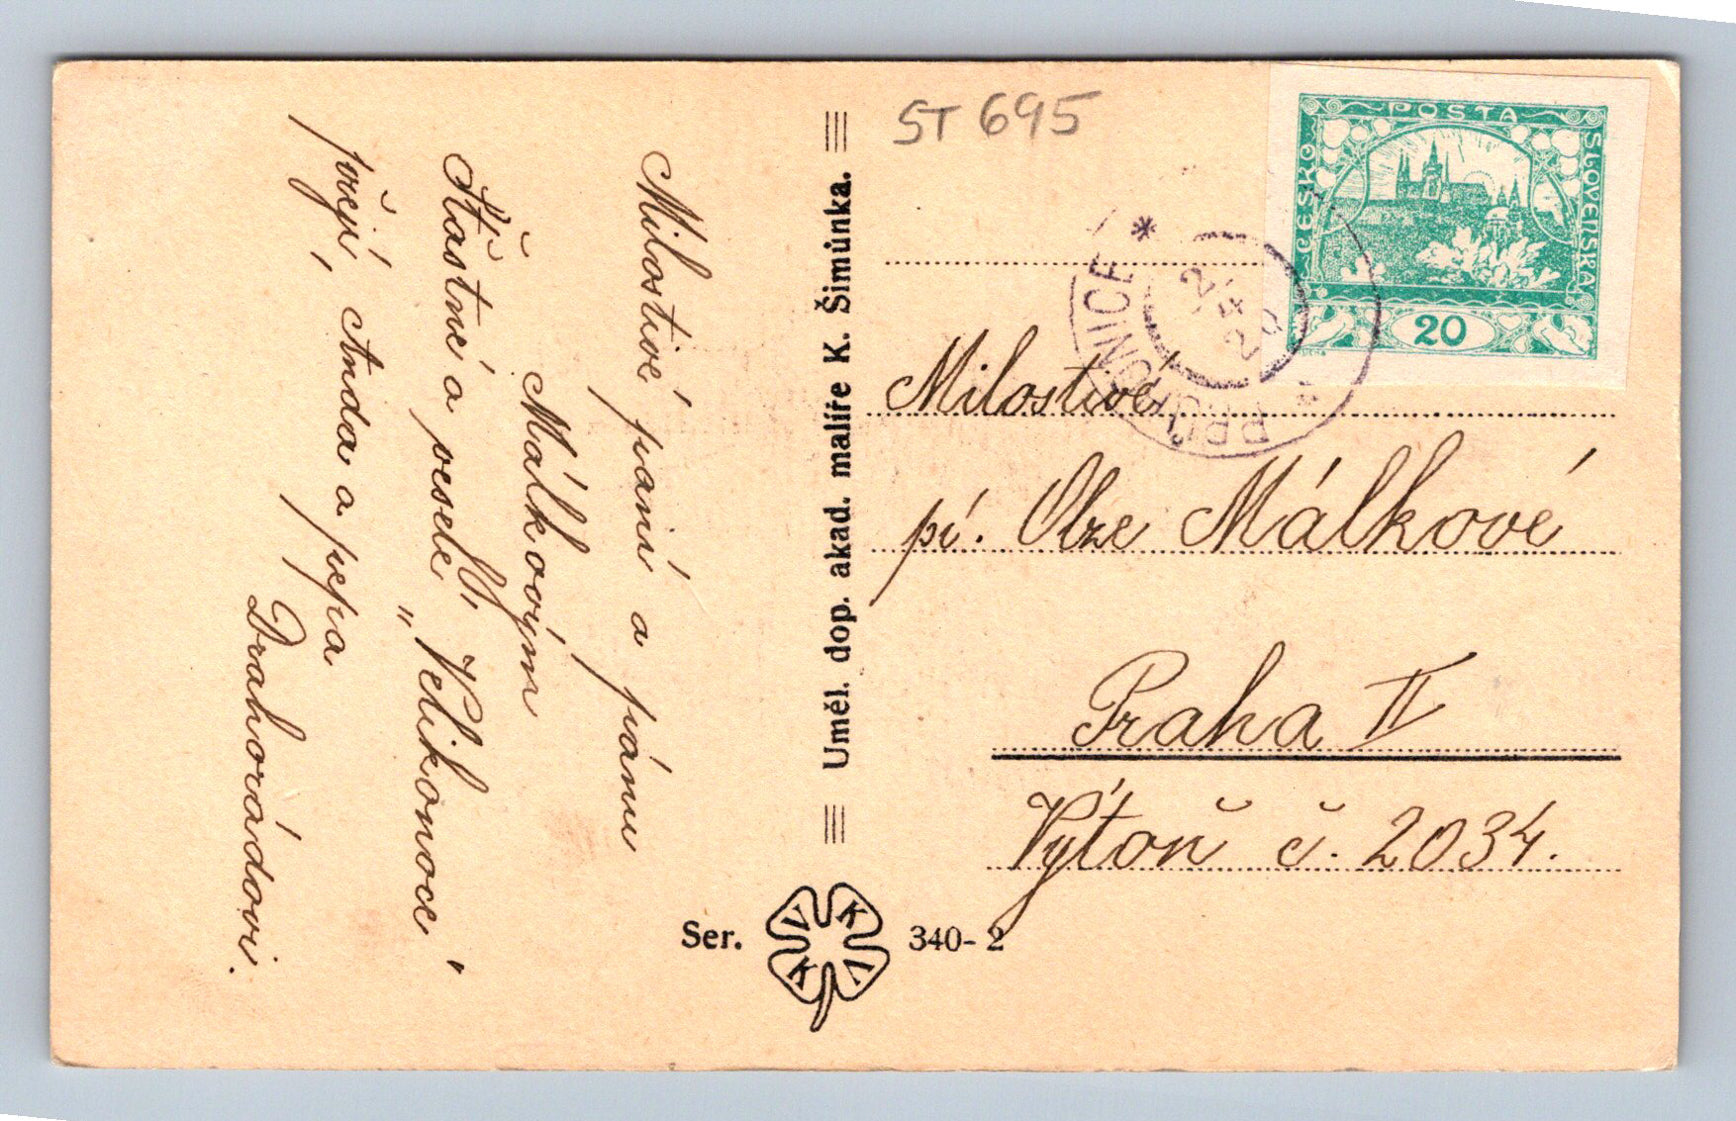 ST 695
POSTA
ČESKO
SLOVENSKÁ
20
PRŮHONICE
Milostivé paní a pánu
Málkovým
Šťastné a veselé
„Velikonoce"
přejí, Anda a pepa
Drahorádovi.
Uměl. dop. akad. malíře K. Šimůnka.
Milostivé
pí. Olze Málkové
Praha II
Výtoň č. 2034.
Ser. VKKV 340-2